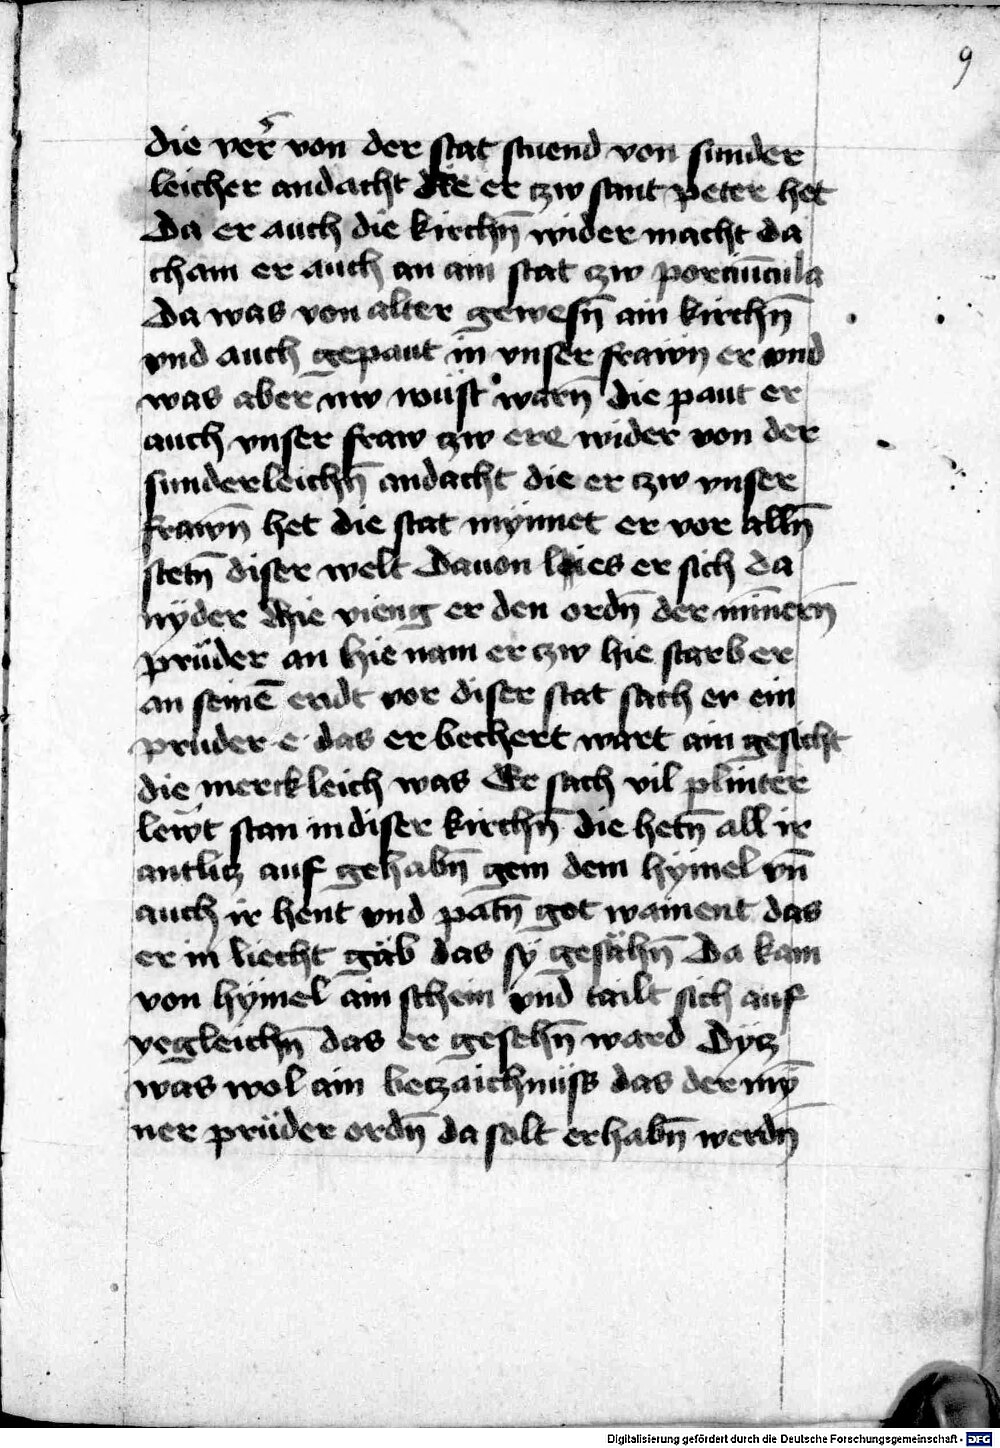 9
die verr̄ von der stat stuend von sunder
leicher andacht die er czw sant peter het
Da er auch die kirchn̄ wider macht da
cham er auch an ain stat czw porciūcula
Da was von alter gewesn̄ ain kirchn̄
vnd auch gepaut in vnser frawn er vnd
was aber nw wüst warn̄ die paut er
auch vnser fraw czw ere wider von der
sunderleichn̄ andacht die er czw vnser
frawn̄ het die stat mynnet er vor alln̄
stetn̄ diser welt Dauon lies er sich da
nyder Hie vieng er den ordn̄ der mīnern̄
prüder an hie nam er czw hie starb er
an seinē endt vor diser stat sach er ein
prüder e das er bechert wart ain gesicht
die merckleich was Er sach vil plinter
lewt stan in diser kirchn̄ die hetn̄ all ir
antlicz auf gehabn̄ gem dem hymel vn̄
auch ir hent vnd patn̄ got wainent das
er in liecht gäb das sy gesähn̄ Da kam
von hymel ain schein vnd tailt sich auf
yegleichn̄ das er gesehn̄ ward Dytz
was wol ain beczaichnüss das der my̅
ner prüder ordn̄ da solt erhabn̄ werdn̄
Digitalisierung gefördert durch die Deutsche Forschungsgemeinschaft - DFG